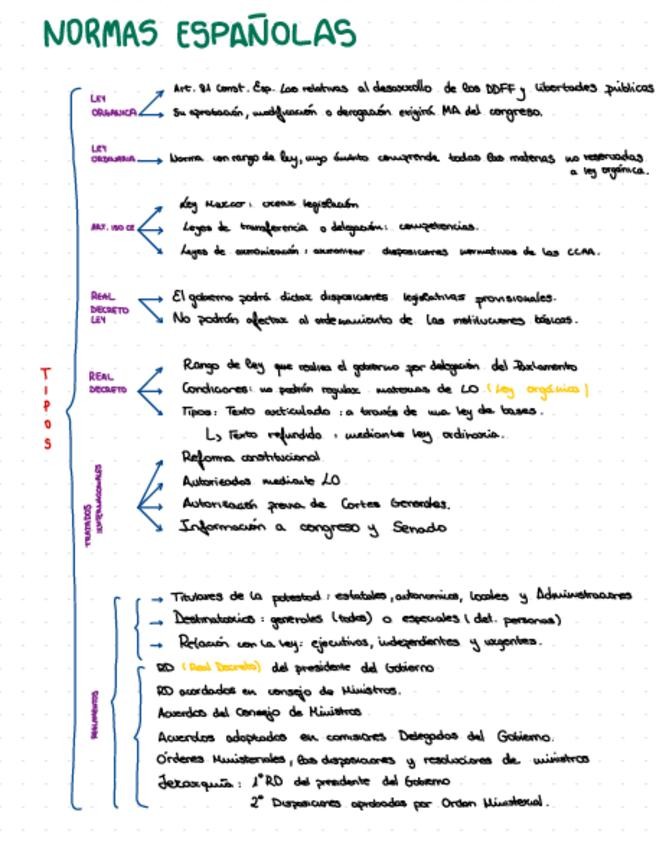 NORMAS ESPAÑOLAS
TIPOS
LEY ORGÁNICA
Art. 81 Const. Esp. Las relativas al desarrollo de los DDFF y libertades públicas
Su aprobación, modificación o derogación exigirá MA del congreso.
LEY ORDINARIA
Norma con rango de ley, cuyo ámbito comprende todas las materias no reservadas
a ley orgánica.
ART. 150 CE
Ley Marco: crear legislación
Leyes de transferencia o delegación: competencias.
Leyes de armonización: armonizar disposiciones normativas de las CCAA.
REAL DECRETO LEY
El gobierno podrá dictar disposiciones legislativas provisionales.
No podrán afectar al ordenamiento de las instituciones básicas.
REAL DECRETO
Rango de ley que realiza el gobierno por delegación del Parlamento
Condiciones: no podrán regular materias de LO (Ley orgánica)
Tipos: Texto articulado: a través de una ley de bases.
Texto refundido: mediante ley ordinaria.
TRATADOS INTERNACIONALES
Reforma constitucional
Autorizados mediante LO
Autorización previa de Cortes Generales.
Información a congreso y Senado
REGLAMENTOS
Titulares de la potestad: estatales, autonómicos, locales y Administraciones
Destinatarios: generales (todos) o especiales (det. personas)
Relación con la ley: ejecutivos, independientes y urgentes.
RD (Real Decreto) del presidente del Gobierno
RD acordados en consejo de Ministros.
Acuerdos del Consejo de Ministros
Acuerdos adoptados en comisiones Delegadas del Gobierno.
Órdenes Ministeriales, las disposiciones y resoluciones de ministros
Jerarquía: 1º RD del presidente del Gobierno
2º Disposiciones aprobadas por Orden Ministerial.